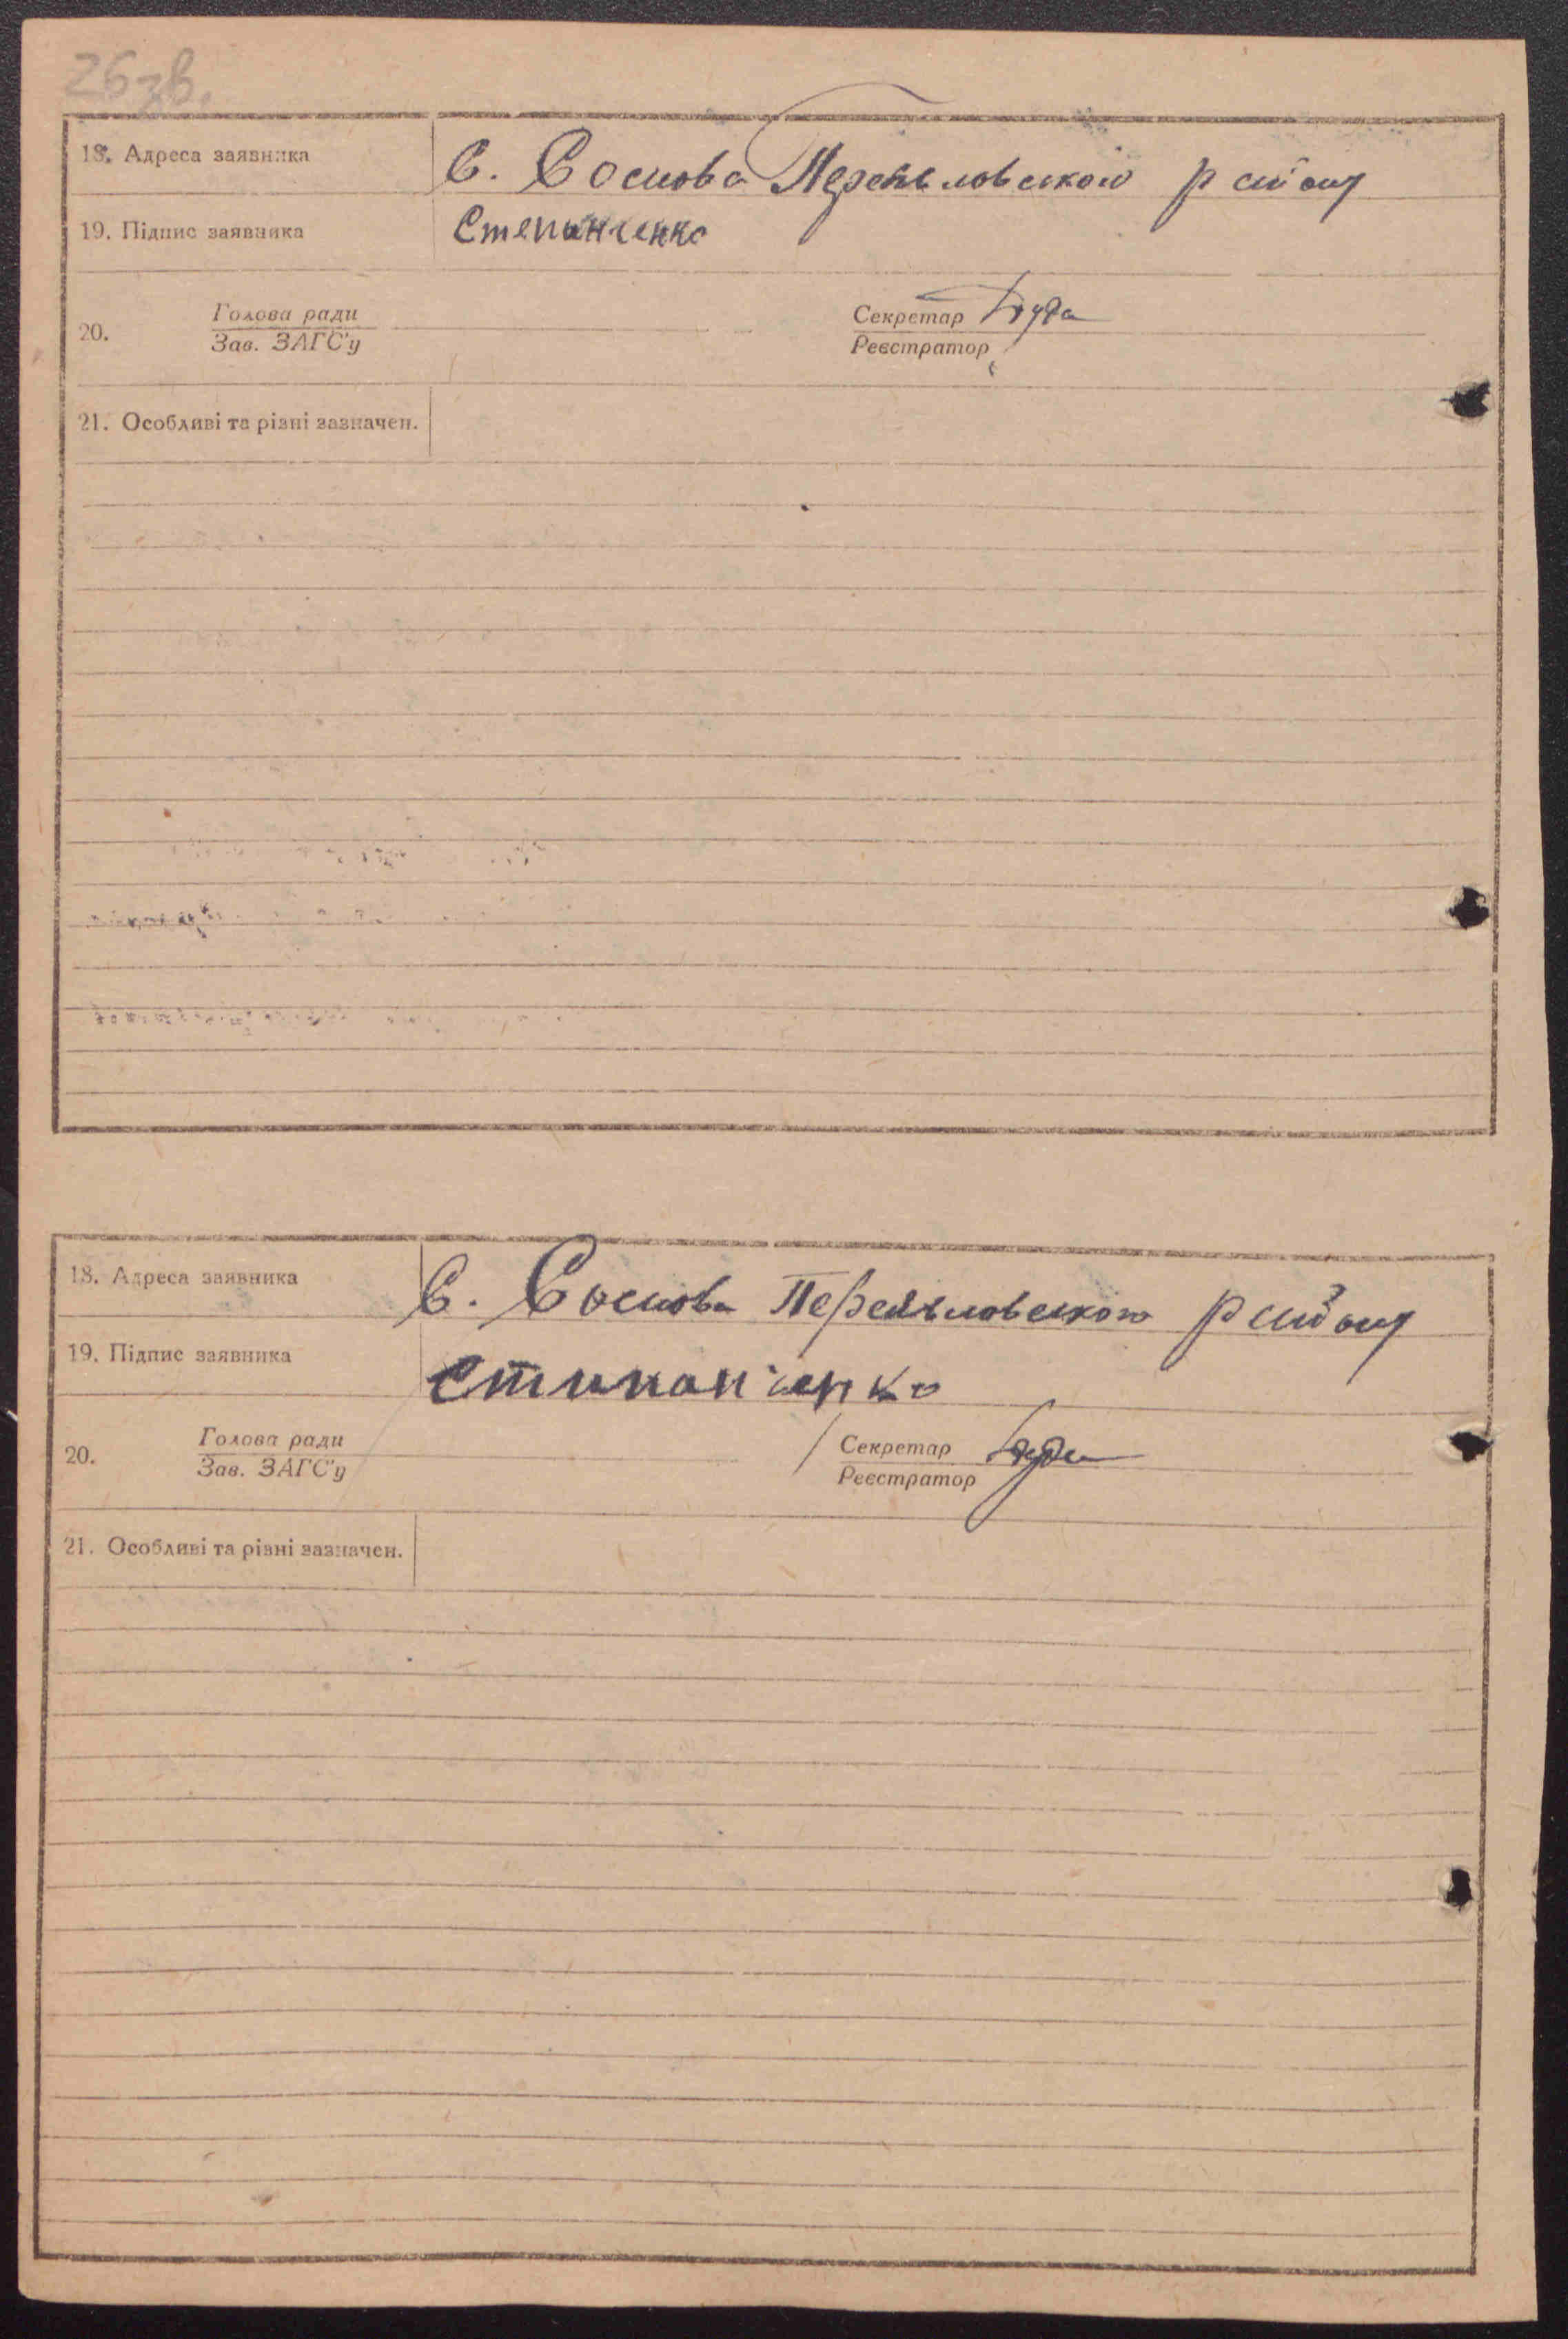 26зв.
18. Адреса заявника С. Соснова Переяславського району
19. Підпис заявника Степанченко
20. Голова ради Секретар Дуда
Зав. ЗАГС'у Реєстратор
21. Особливі та різні зазначен.
18. Адреса заявника С. Соснова Переяславського району
19. Підпис заявника Стипанченко
20. Голова ради Секретар Дуда
Зав. ЗАГС'у Реєстратор
21. Особливі та різні зазначен.